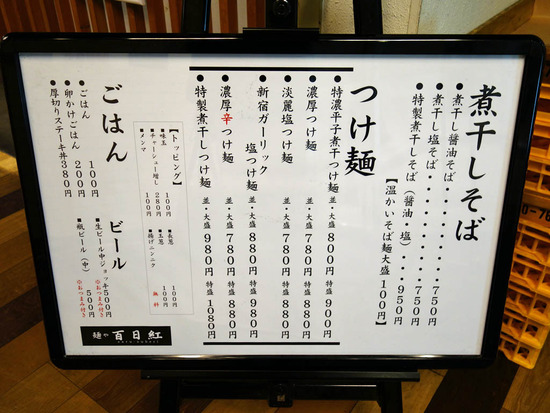 煮干しそば
●煮干し醤油そば・・・・・・・750円
●煮干し塩そば・・・・・・・・750円
●特製煮干しそば（醤油・塩）・・・950円
【温かいそば麺大盛 100円】
つけ麺
●特濃平子煮干つけ麺 並・大盛 800円 特盛 900円
●濃厚つけ麺 並・大盛 780円 特盛 880円
●淡麗塩つけ麺 並・大盛 780円 特盛 880円
●新宿ガーリック塩つけ麺 並・大盛 880円 特盛 980円
●濃厚辛つけ麺 並・大盛 780円 特盛 880円
●特製煮干しつけ麺 並・大盛 980円 特盛 1080円
【トッピング】
●味玉 100円
●チャーシュー増し 280円
●メンマ 100円
●長葱 100円
●玉葱 100円
●揚げニンニク 無料
ごはん
●ごはん 100円
●卵かけごはん 200円
●厚切りステーキ丼 380円
ビール
●生ビール中ジョッキ 500円
※おつまみ付き
●瓶ビール（中） 500円
※おつまみ付き
麺や 百日紅